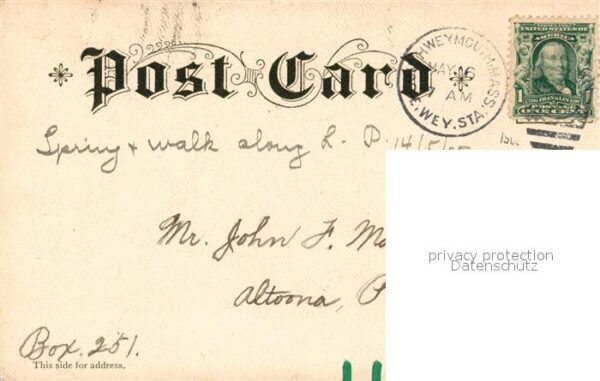 Post Card
WEYMOUTH, MASS.
MAY 16
7 AM
E. WEY. STA.
SERIES 1902
UNITED STATES OF
AMERICA
1 1
FRANKLIN
ONE CENT
Spring & walk along L. P. 14/5/
Mr. John F.
Altoona, P
privacy protection
Datenschutz
Box. 251.
This side for address.